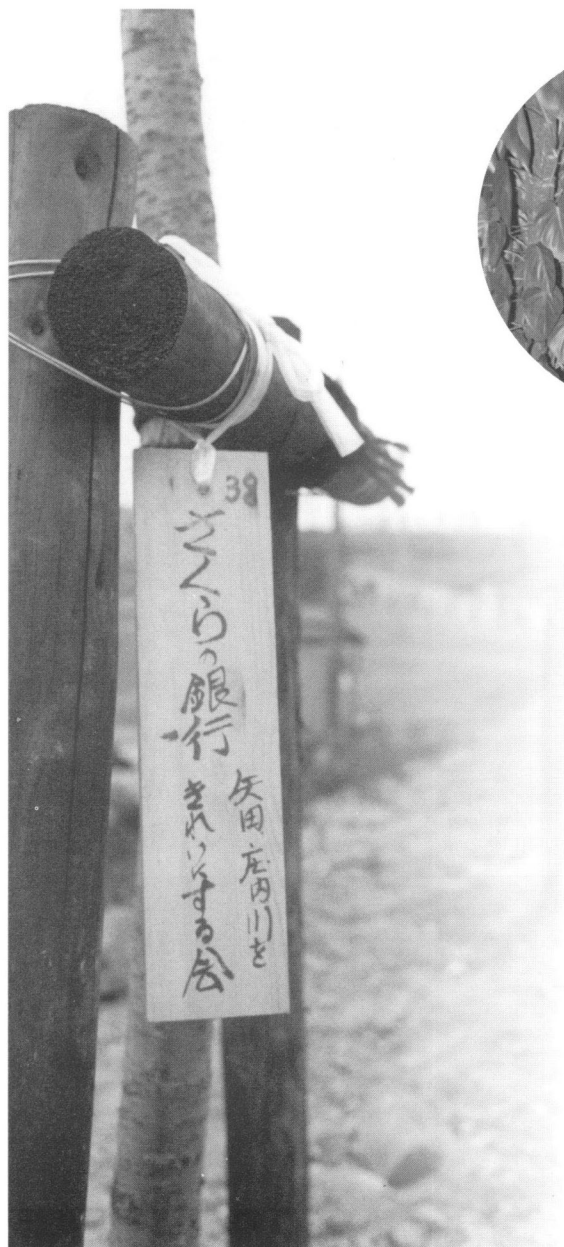 38
さくらの銀行
矢田・庄内川を
きれいにする会